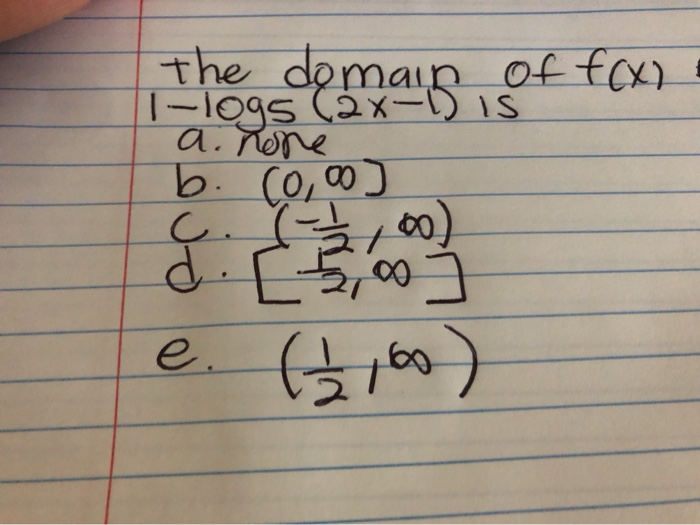 the domain of f(x)
1-log5 (2x-1) is
a. none
b. (0,∞]
c. (-1/2, ∞)
d. [1/2, ∞]
e. (1/2, ∞)